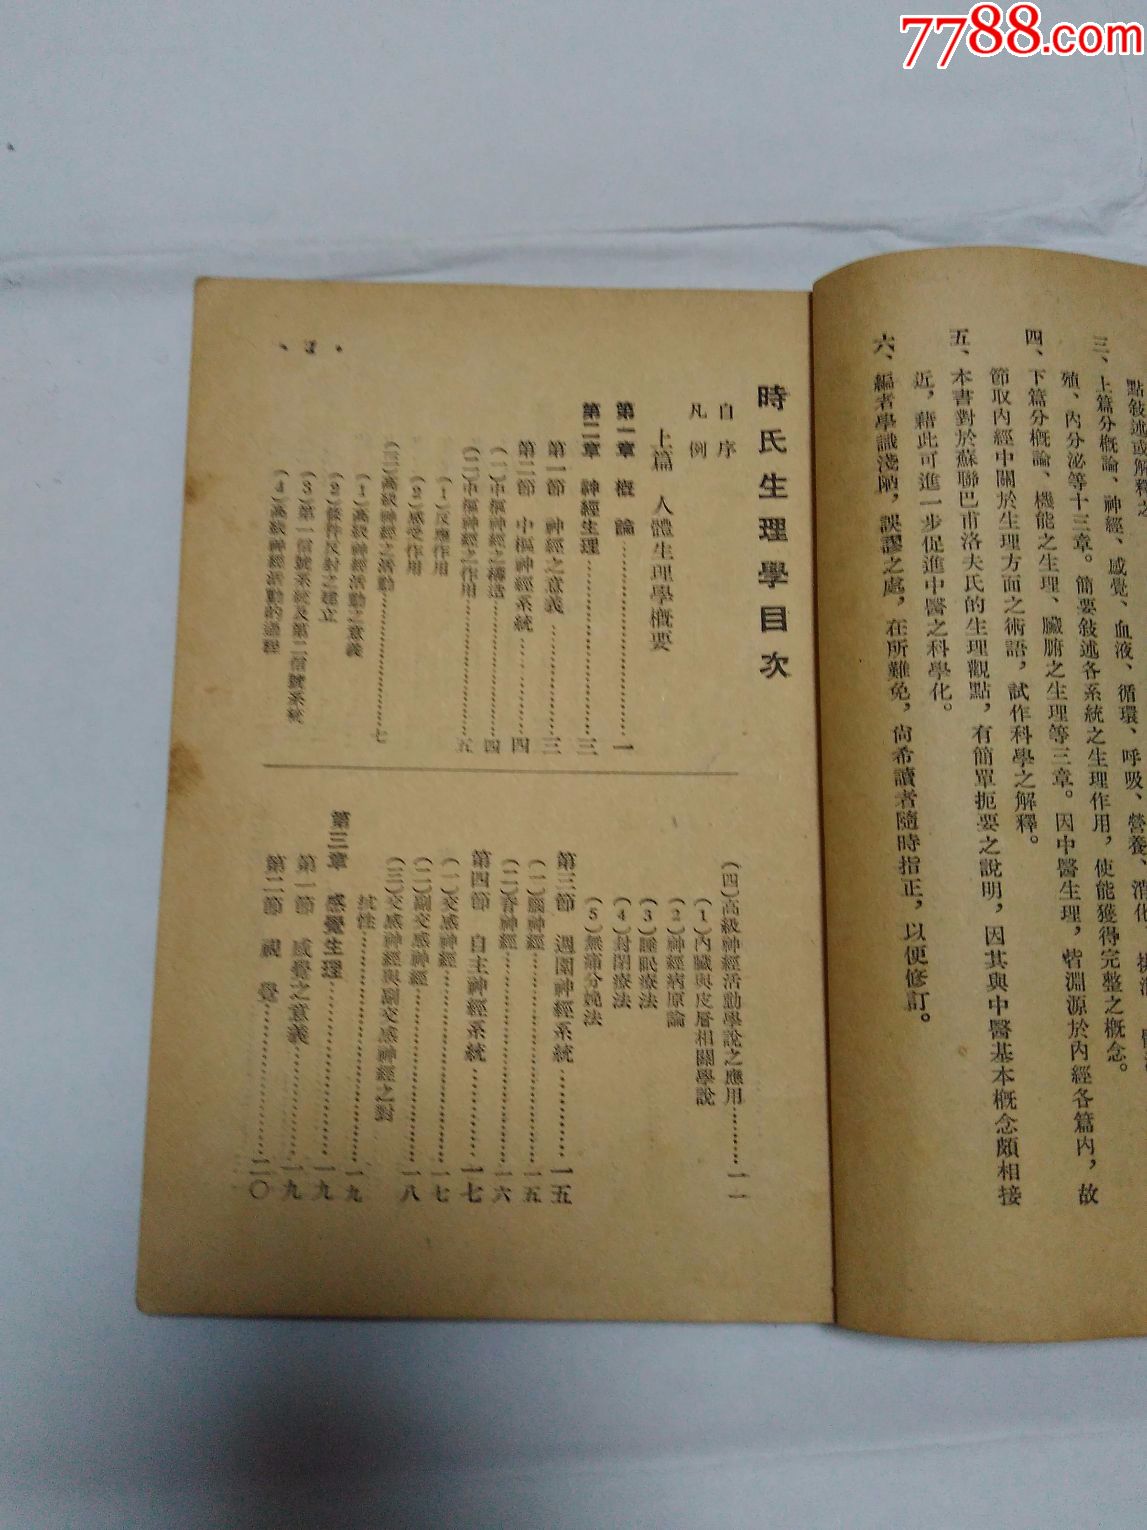 7788.com
點敘述或解釋之
三、上篇分概論、神經、感覺、血液、循環、呼吸、營養、消化、排泄、
殖、內分泌等十三章。簡要敍述各系統之生理作用，使能獲得完整之概念。
四、下篇分概論、機能之生理、臟腑之生理等三章。因中醫生理，皆淵源於內經各篇內，故
節取內經中關於生理方面之術語，試作科學之解釋。
五、本書對於蘇聯巴甫洛夫氏的生理觀點，有簡單扼要之說明，因其與中醫基本概念頗相接
近，藉此可進一步促進中醫之科學化。
六、編者學識淺陋，誤謬之處，在所難免，尙希讀者隨時指正，以便修訂。
時氏生理學目次
自序
凡例
上篇 人體生理學概要
第一章 概論…………一
第二章 神經生理…………三
第一節 神經之意義…………三
第二節 中樞神經系統…………四
(一)中樞神經之構造…………四
(二)中樞神經之作用…………五
(1)反應作用
(2)感受作用
(三)高級神經之活動…………七
(1)高級神經活動之意義
(2)條件反射之建立
(3)第一信號系統及第二信號系統
(4)高級神經活動的過程
(四)高級神經活動學說之應用…………一一
(1)內臟與皮層相關學說
(2)神經病原論
(3)睡眠療法
(4)封閉療法
(5)無痛分娩法
第三節 週圍神經系統…………一五
(一)腦神經…………一五
(二)脊神經…………一六
第四節 自主神經系統…………一七
(一)交感神經…………一七
(二)副交感神經…………一八
(三)交感神經與副交感神經之對
抗性…………一九
第三章 感覺生理…………一九
第一節 感覺之意義…………一九
第二節 視覺…………二〇